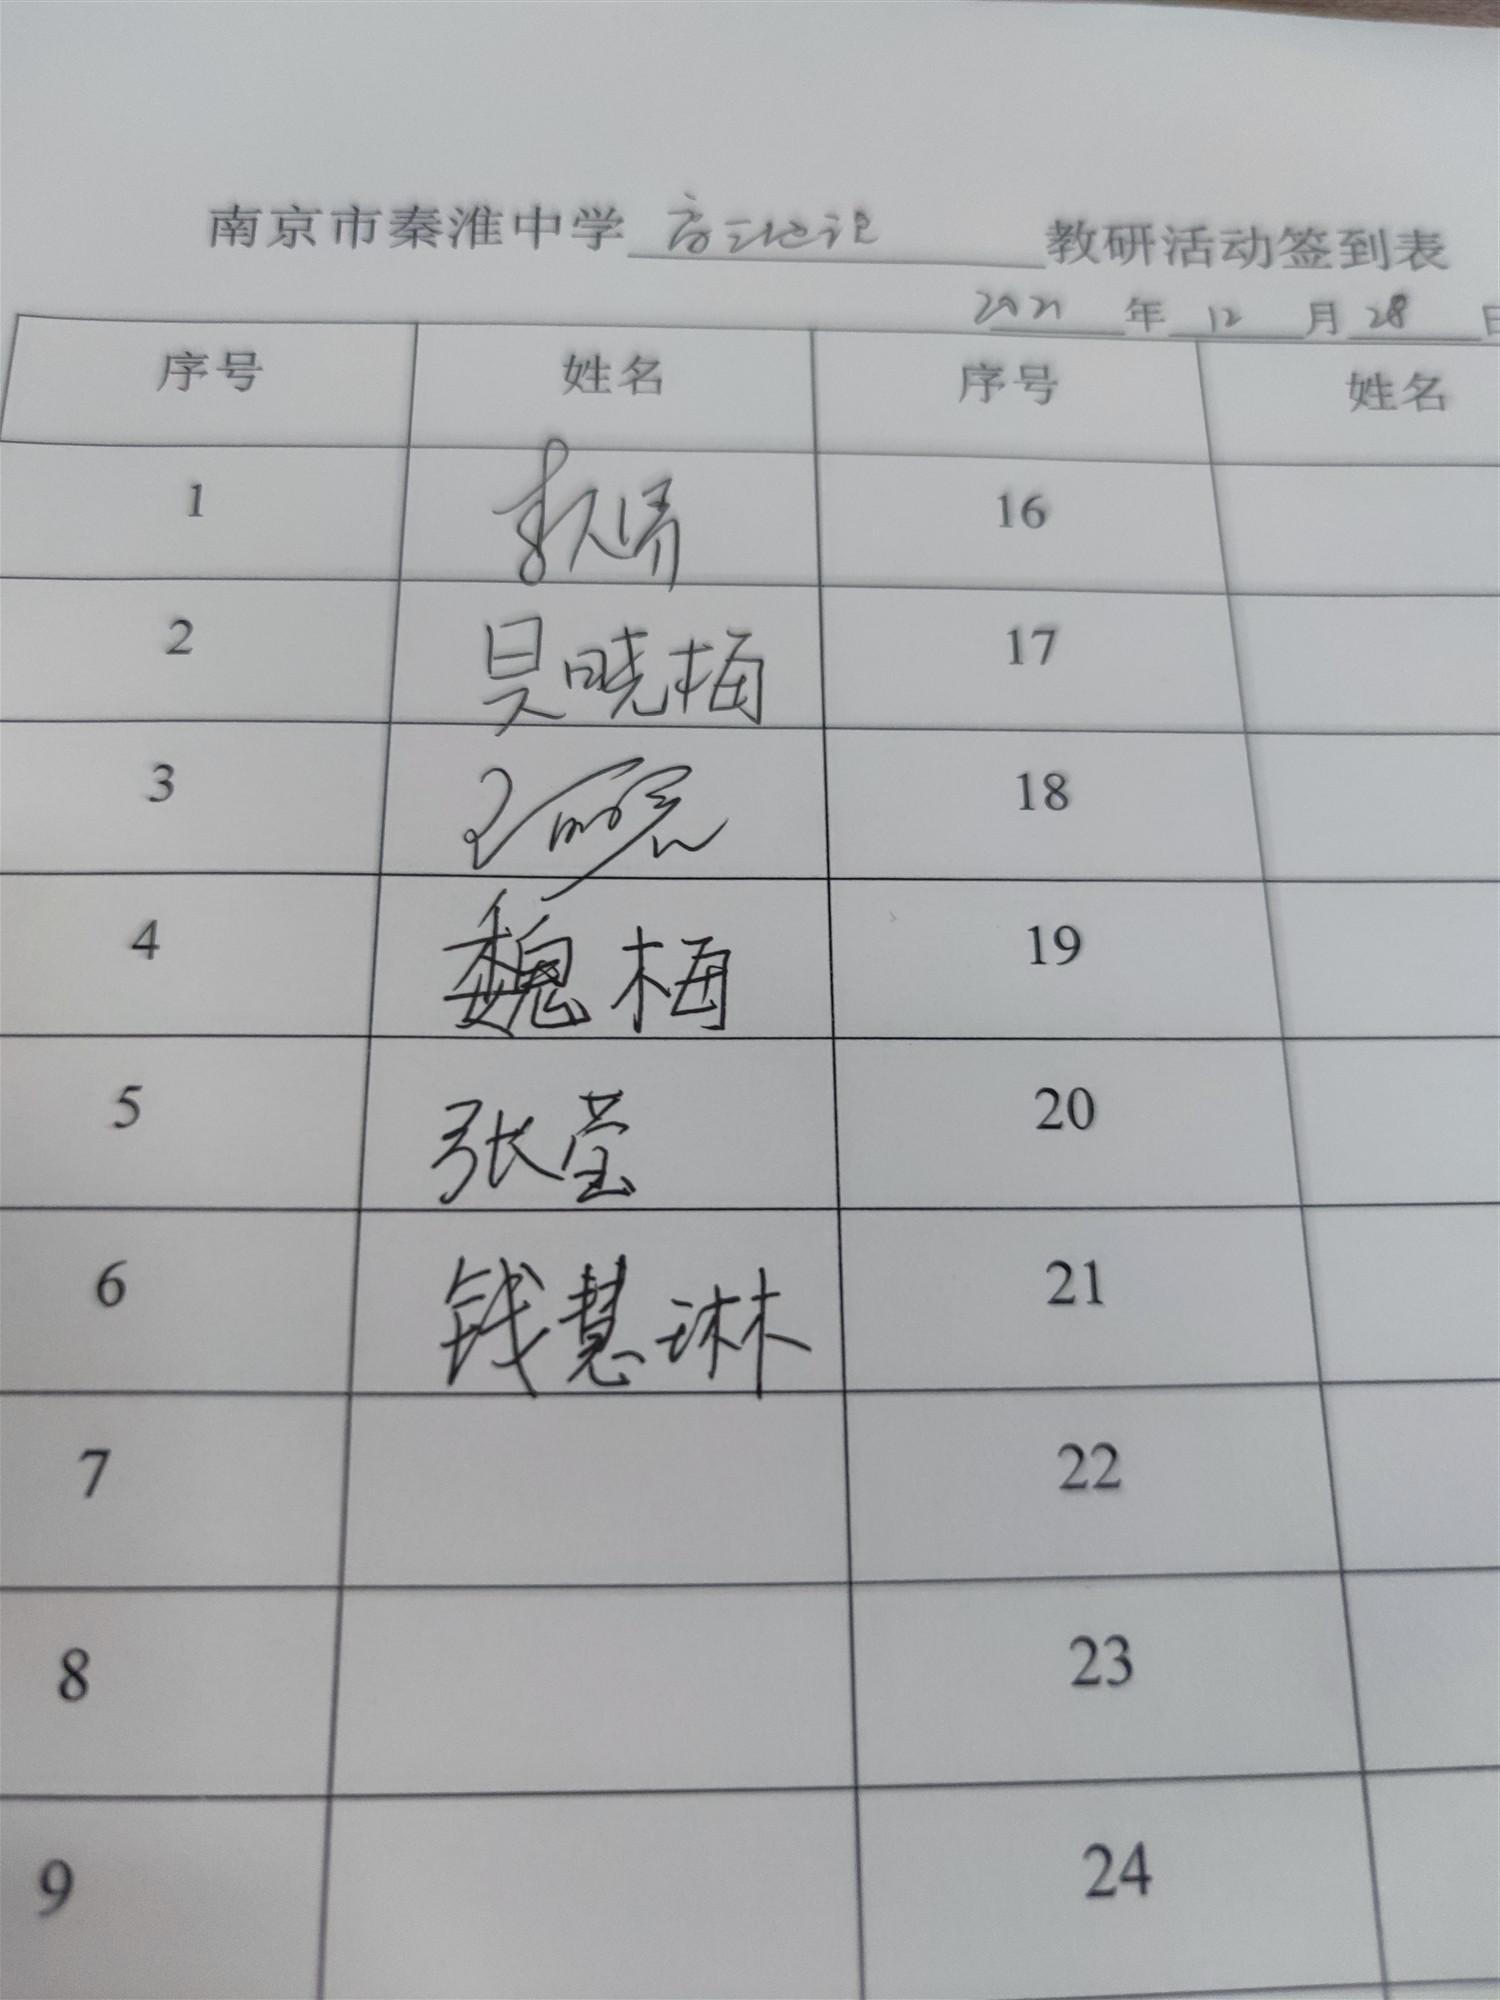 南京市秦淮中学 教研活动签到表
2021 年 12 月 28 日
序号 姓名 序号 姓名
1 16
2 吴晓梅 17
3 18
4 魏梅 19
5 张莹 20
6 钱慧琳 21
7 22
8 23
9 24